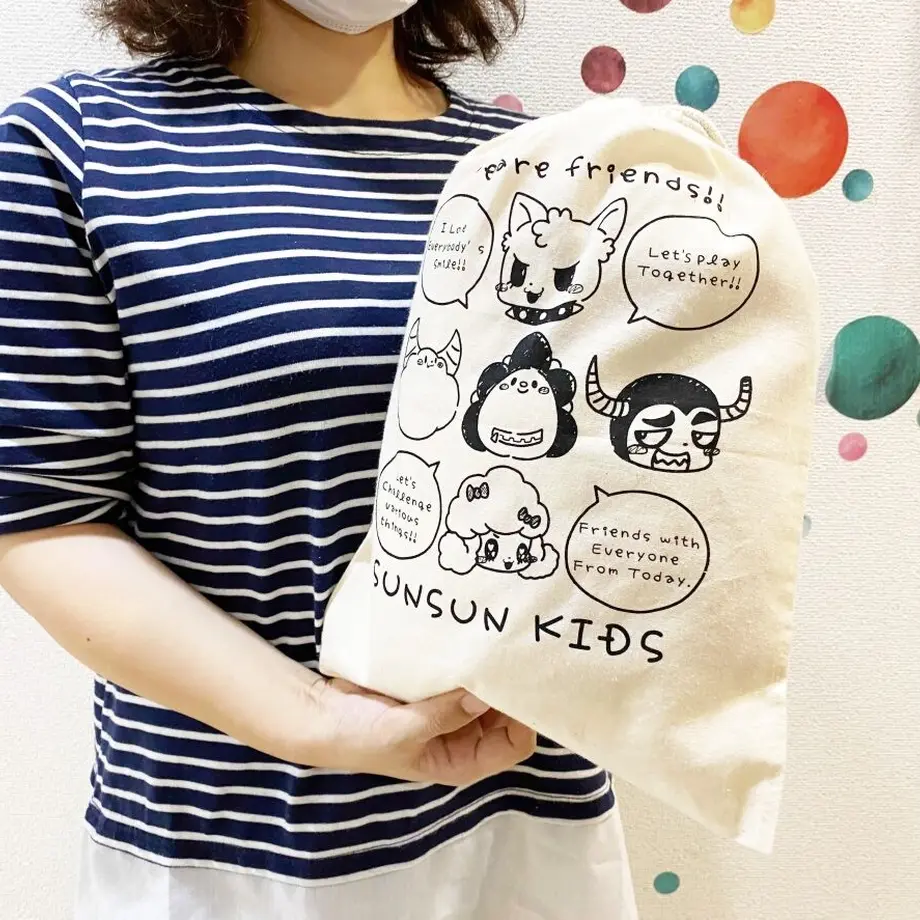 are friends!!
I Lo
Everybody's
Smile!!
Let's play
Together!!
Let's
Challenge
various
things!!
Friends with
Everyone
From Today.
SUNSUN KIDS